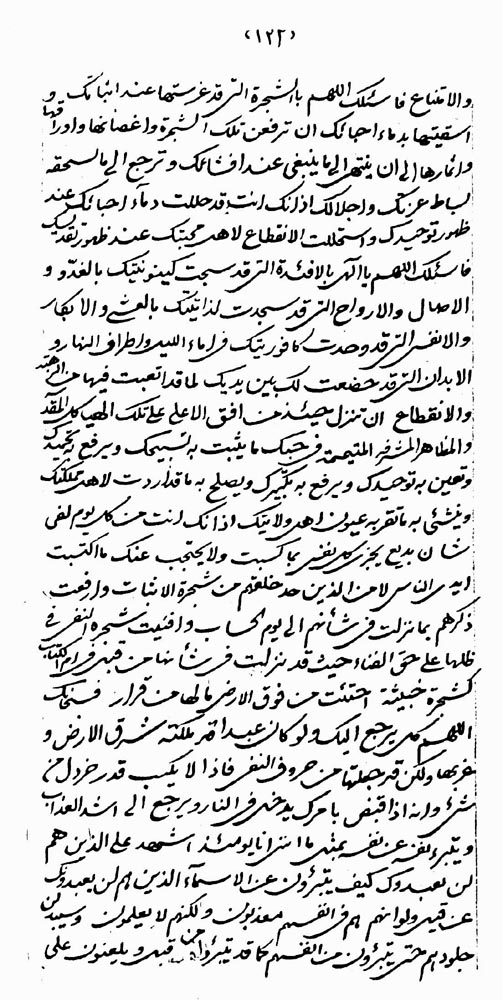 «١٢٢»
والامتناع فاسئلك اللهم بالشجرة التى قد غرستها عند اثباتك و
اسقيتها بدماء احبائك ان ترفعن تلك الشجرة واغصانها واوراقها
واثمارها الى ان ينتهى الى ما ينبغى عند افضالك وترجع الى ما يستحقه
لبساط عزتك واجلالك اذ انك انت قد حللت دماء احبائك عند
ظهور توحيدك و الانقطاع لاهل محبتك عند ظهور
فاسئلك اللهم يا الهى بالافئدة التى قد سبحت كينونيتك بالغدو و
الاصال والارواح التى قد سجدت لذاتيتك بالعشى والابكار
والانفس التى قد وحدت كافوريتك فى اناء الليل واطراف النهار و
الابدان التى قد خضعت لك بين يديك لما قد اتعبت فيها من
والانقطاع ان تنزل حينئذ من افق الاعلى على تلك
والمظاهر المشرفه المتيمة فى حبك ما يثبت به تسبيحك ويرفع به تحميدك
وتعين به توحيدك ويرفع به تكبيرك ويصلح به ما قد اردت لاهل مملكتك
وينشئ به ما تقر به عيون اهل ولايتك اذ انك انت من كل يوم لفى
شان بديع يجزى كل نفس بما كسبت ولا يحتجب عنك ما اكتسبت
ايدى الناس لا من الذين قد خلقتهم من شجرة الاثبات وارفعت
ذكرهم بما نزلت فى شأنهم الى يوم الحساب وافنيت شجرة النفى فى
ظلها على حق الفناء حيث قد نزلت فى شأنها من قبل فى ام الكتاب
كشجرة خبيثة اجتثت من فوق الارض ما لها من قرار فسبحانك
اللهم كل يرجع اليك ولو كان عبدا قد ملكته شرق الارض و
غربها ولكن قد جعلتها من حروف النفى فاذا لا يكسب قدر خردل من
شئ وانه اذا قبض بامرك يدخل فى النار ويرجع الى اشد العذاب
ويتبرء نفسه عن نفسه بمثل ما يومئذ اشهد على الذين هم
لن يعبدوك كيف يتبرؤن عن الاسماء الذين هم لن يعبدونك
عن قبل ولو انهم هم فى انفسهم معذبون ولكنهم لا يعلمون
جلودهم حتى يتبرؤن من انفسهم كما قد تبرؤا من قبل و يلعنون على